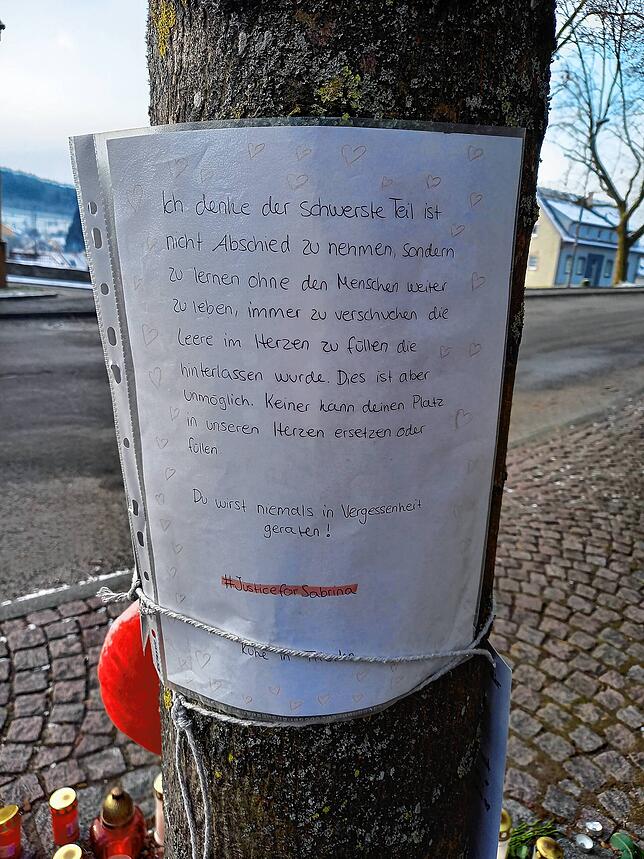 Ich denke der schwerste Teil ist
nicht Abschied zu nehmen, sondern
zu lernen ohne den Menschen weiter
zu leben, immer zu verschuchen die
Leere im Herzen zu füllen die
hinterlassen wurde. Dies ist aber
unmöglich. Keiner kann deinen Platz
in unseren Herzen ersetzen oder
füllen.
Du wirst niemals in Vergessenheit
geraten!
#JusticeforSabrina
Ruhe in